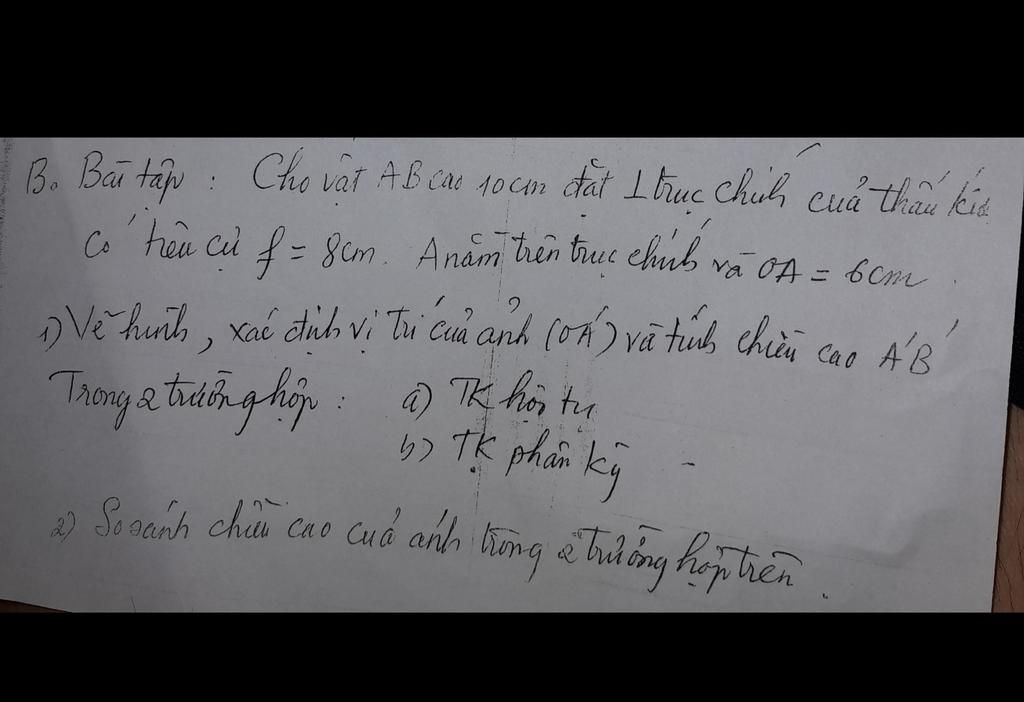 B. Bài tập : Cho vật AB cao 10cm đặt ⊥ trục chính của thấu kính
có tiêu cự f = 8cm. A nằm trên trục chính và OA = 6cm.
1) Vẽ hình, xác định vị trí của ảnh (OA') và tính chiều cao A'B'
Trong 2 trường hợp : a) TK hội tụ
b) TK phân kỳ -
2) So sánh chiều cao của ảnh trong 2 trường hợp trên.